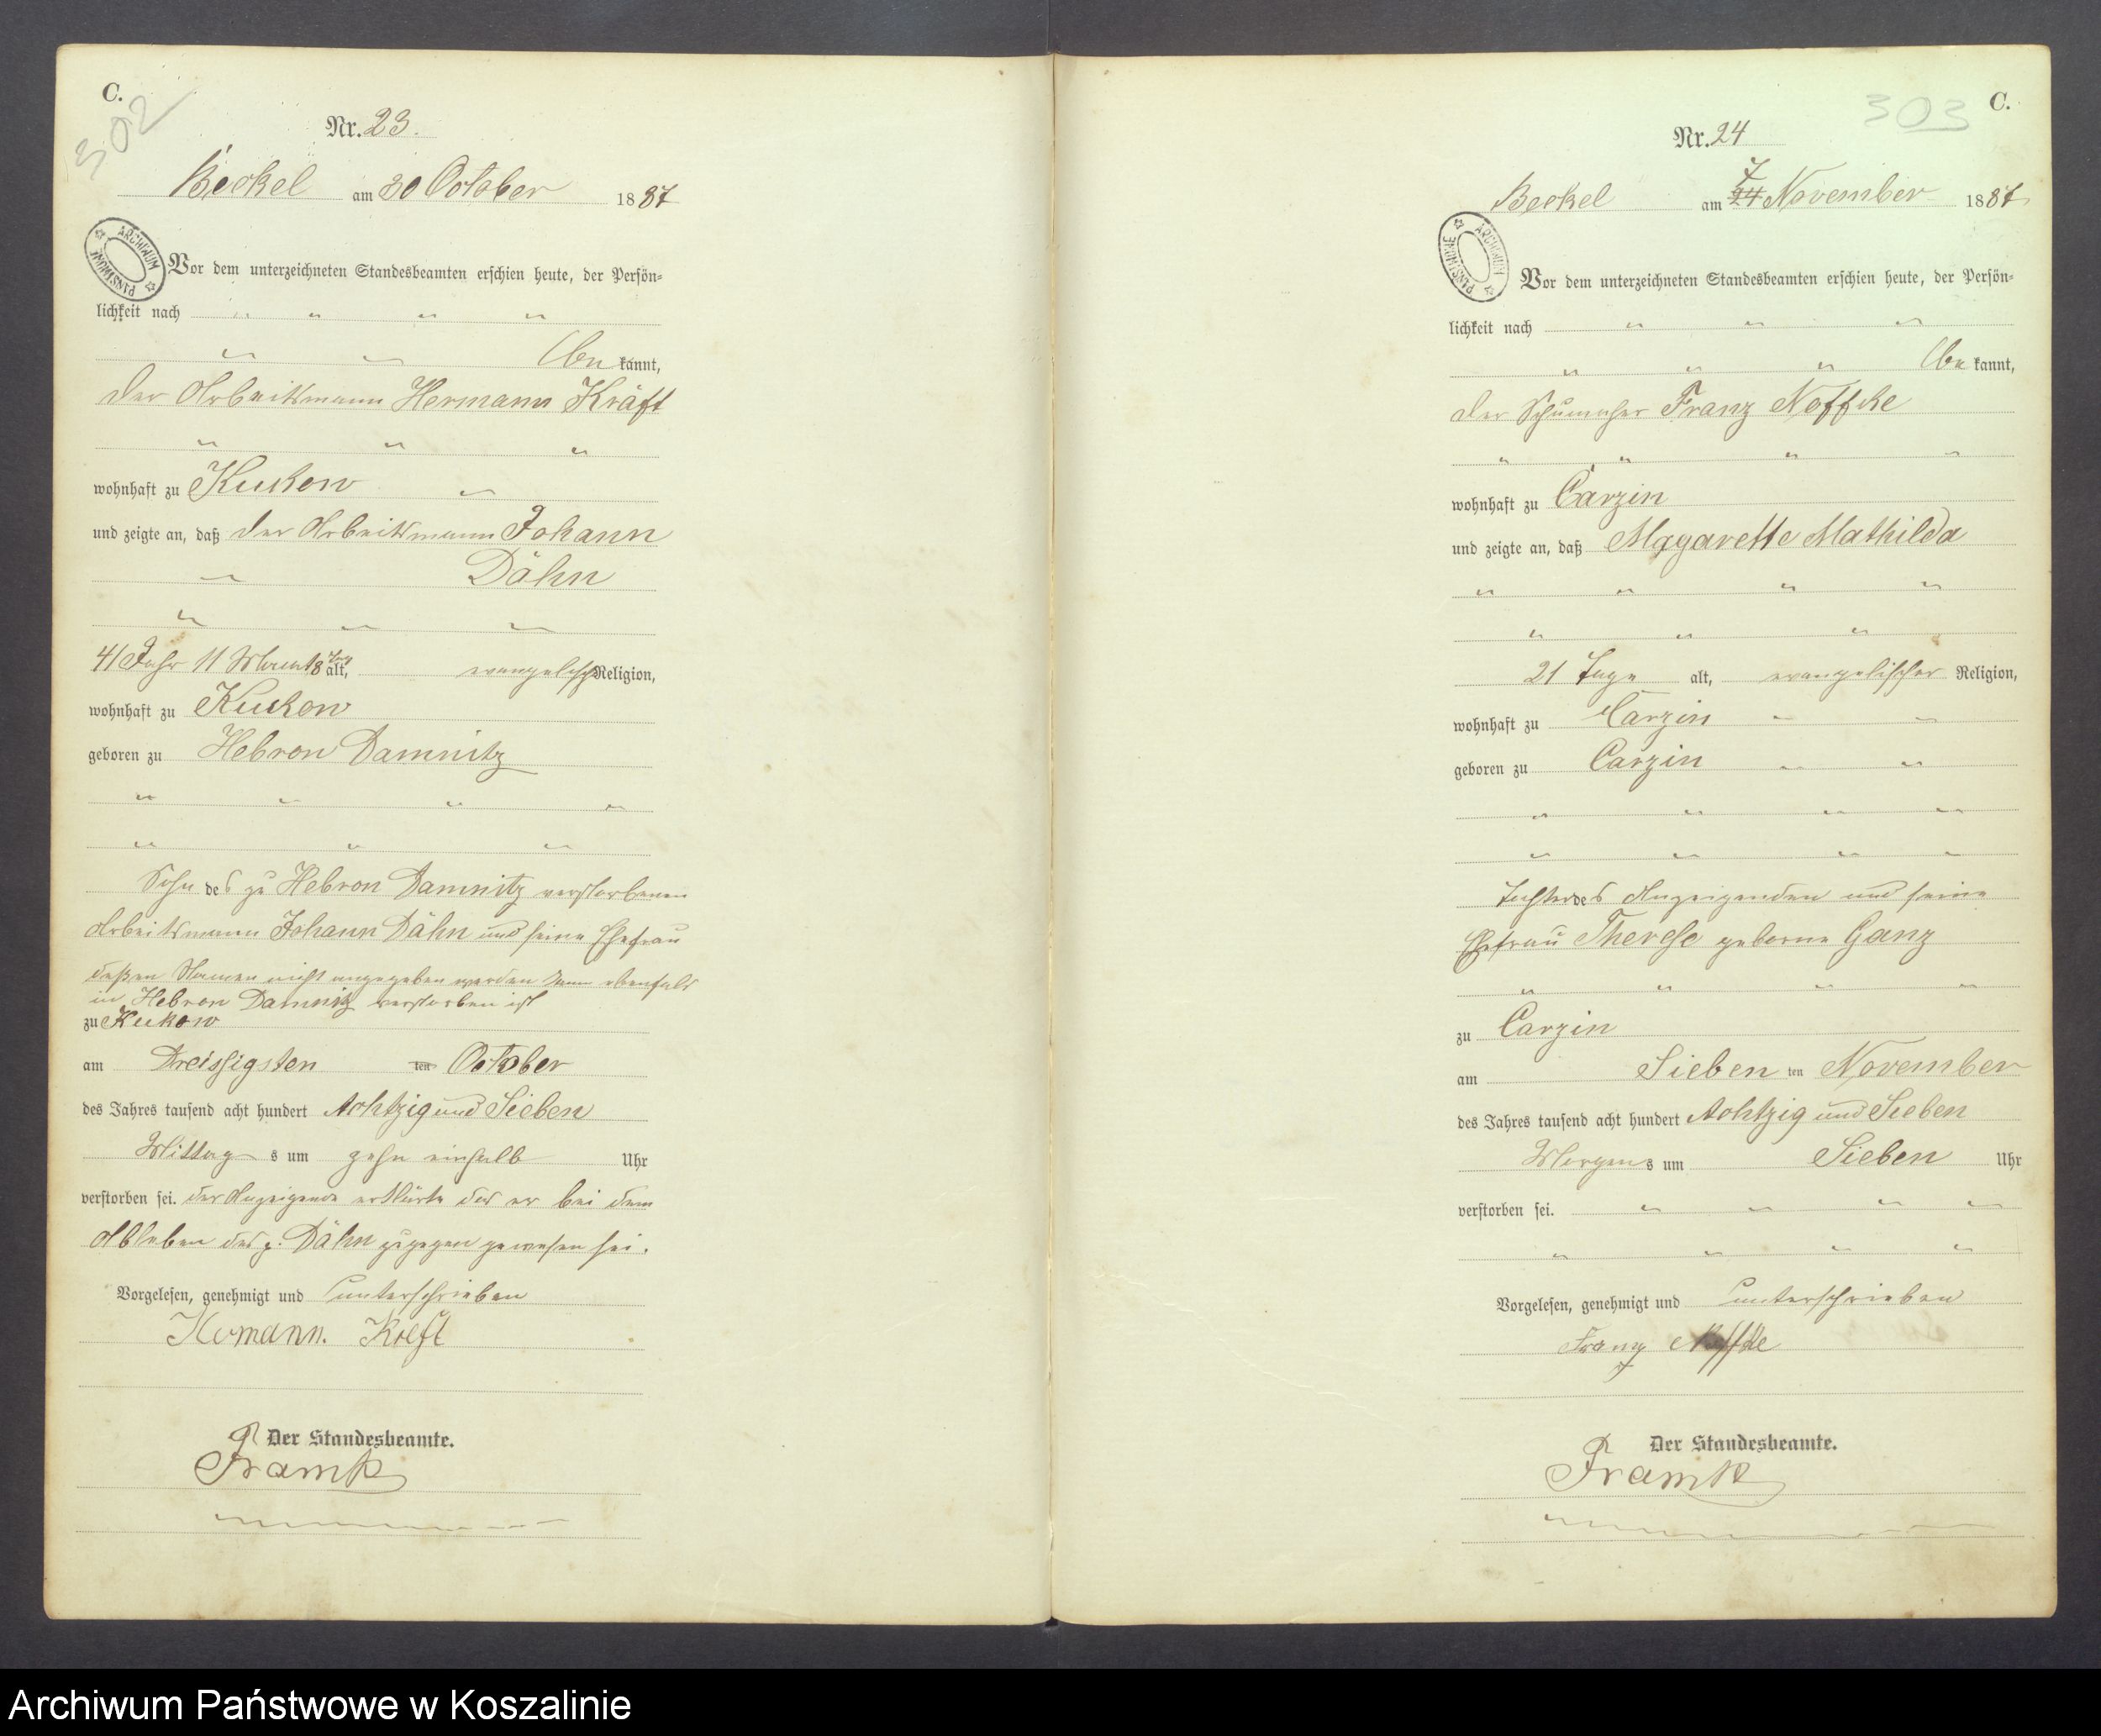 C.
302
Nr. 23.
Beckel am 30 October 1887
ARCHIWUM PAŃSTWOWE
Vor dem unterzeichneten Standesbeamten erschien heute, der Persön-
lichkeit nach " " " "
" " be kannt,
der Arbeitsmann Hermann Kräft
" " "
wohnhaft zu Kukow "
und zeigte an, daß der Arbeitsmann Johann
" Dähn
" " "
41 Jahr 11 Monat 8 Tag alt, evangelisch Religion,
wohnhaft zu Kukow
geboren zu Hebron Damnitz
" " " "
" " "
Sohn des zu Hebron Damnitz verstorbenen
Arbeitsmann Johann Dähn und seine Ehefrau
deßen Namen nicht angegeben werden kann ebenfals
in Hebron Damnitz verstorben ist
zu Kukow
am Dreissigsten ten October
des Jahres tausend acht hundert Achtzig und Sieben
Mittag s um zehn einhalb Uhr
verstorben sei. der Anzeigende erklärte das er bei dem
Ableben des p. Dähn zugegen gewesen sei.
Vorgelesen, genehmigt und unterschrieben
Hermann. Kreft
Der Standesbeamte.
Framk
C.
303
Nr. 24
7
Beckel am 24 November 1887
ARCHIWUM PAŃSTWOWE
Vor dem unterzeichneten Standesbeamten erschien heute, der Persön-
lichkeit nach " " "
" " " be kannt,
der Schumacher Franz Noffcke
" " " "
wohnhaft zu Carzin
und zeigte an, daß Magarette Mathilda
" " " "
" " "
21 Tage alt, evangelischer Religion,
wohnhaft zu Carzin " "
geboren zu Carzin " "
" " " "
" " " "
Tochter des Anzeigenden und seine
Ehefrau Therese geborne Ganz
" " " "
zu Carzin
am Sieben ten November
des Jahres tausend acht hundert Achtzig und Sieben
Morgen s um Sieben Uhr
verstorben sei. " " " "
" " " "
Vorgelesen, genehmigt und unterschrieben
Franz Noffke
Der Standesbeamte.
Framk
Archiwum Państwowe w Koszalinie